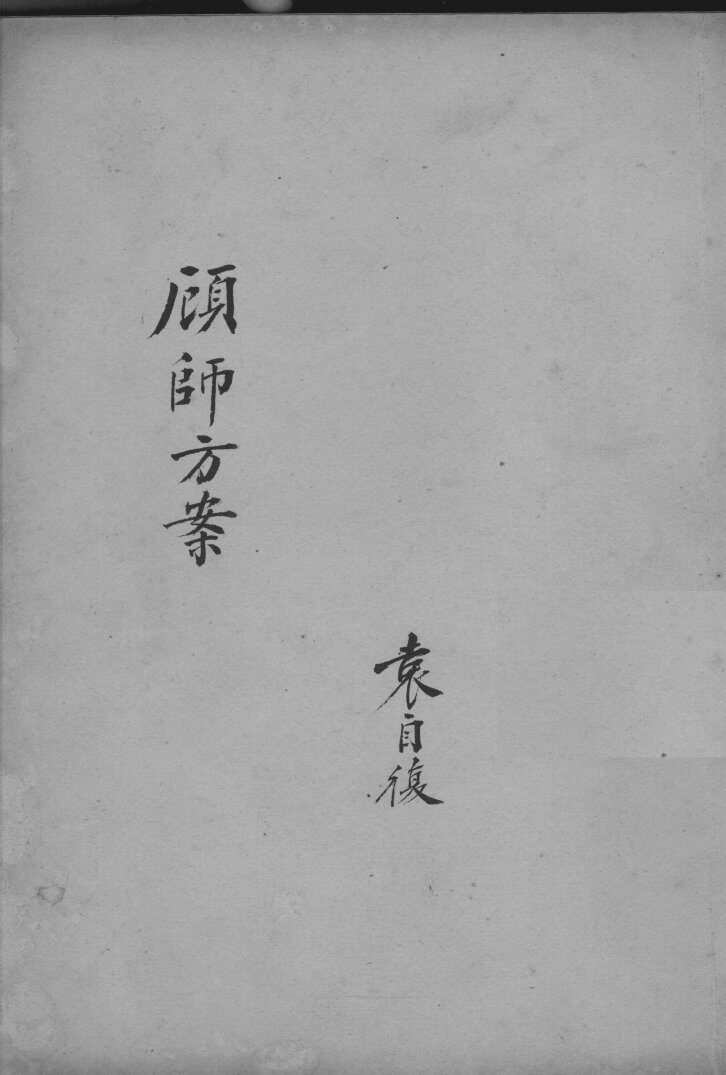 袁自復
顾師方案